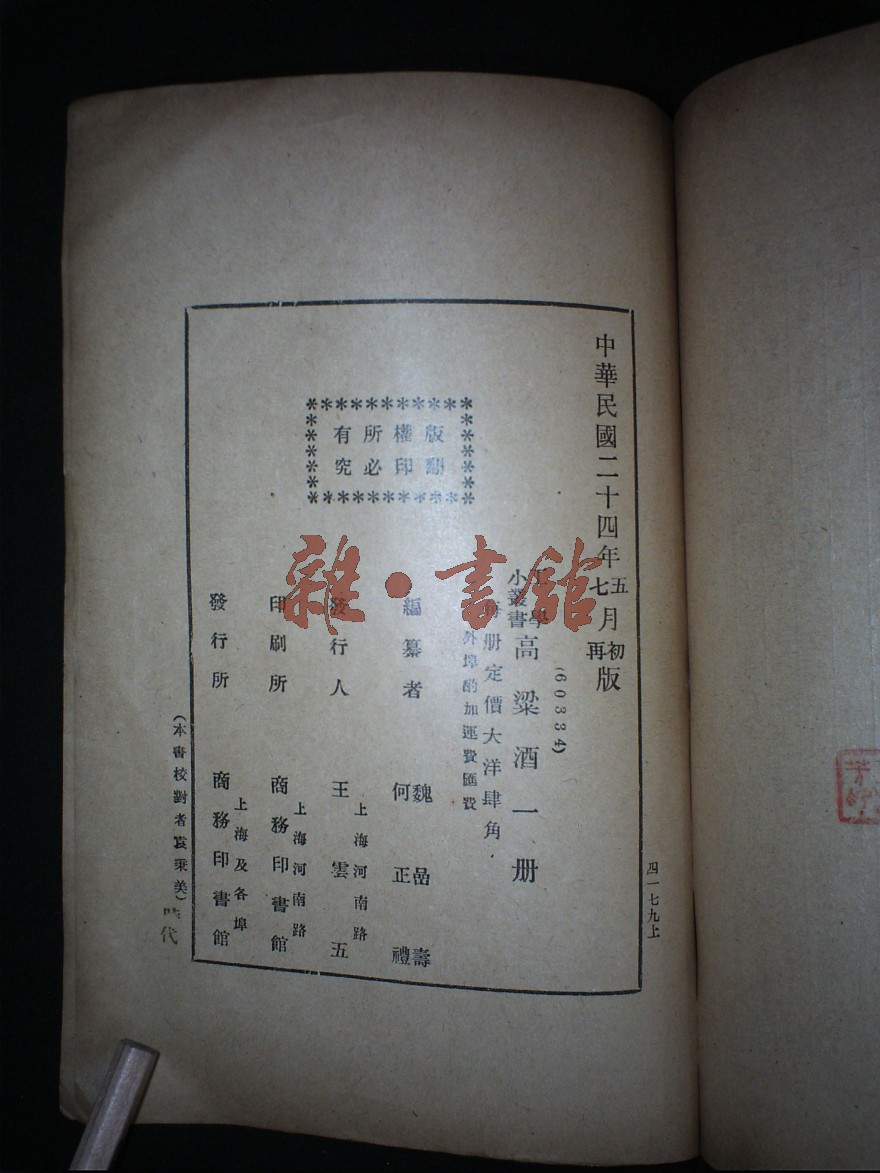 中華民國二十四年五月初版
七 再
(60334)
工學
小叢書
高粱酒一册
每册定價大洋肆角
外埠酌加運費匯費
版權所有
翻印必究
編纂者
魏嵒壽
何正禮
發行人
上海河南路
王雲五
印刷所
上海河南路
商務印書館
發行所
上海及各埠
商務印書館
(本書校對者袁秉美)
時代
四一七九上
雜·書館